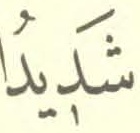 شَدِيدُا